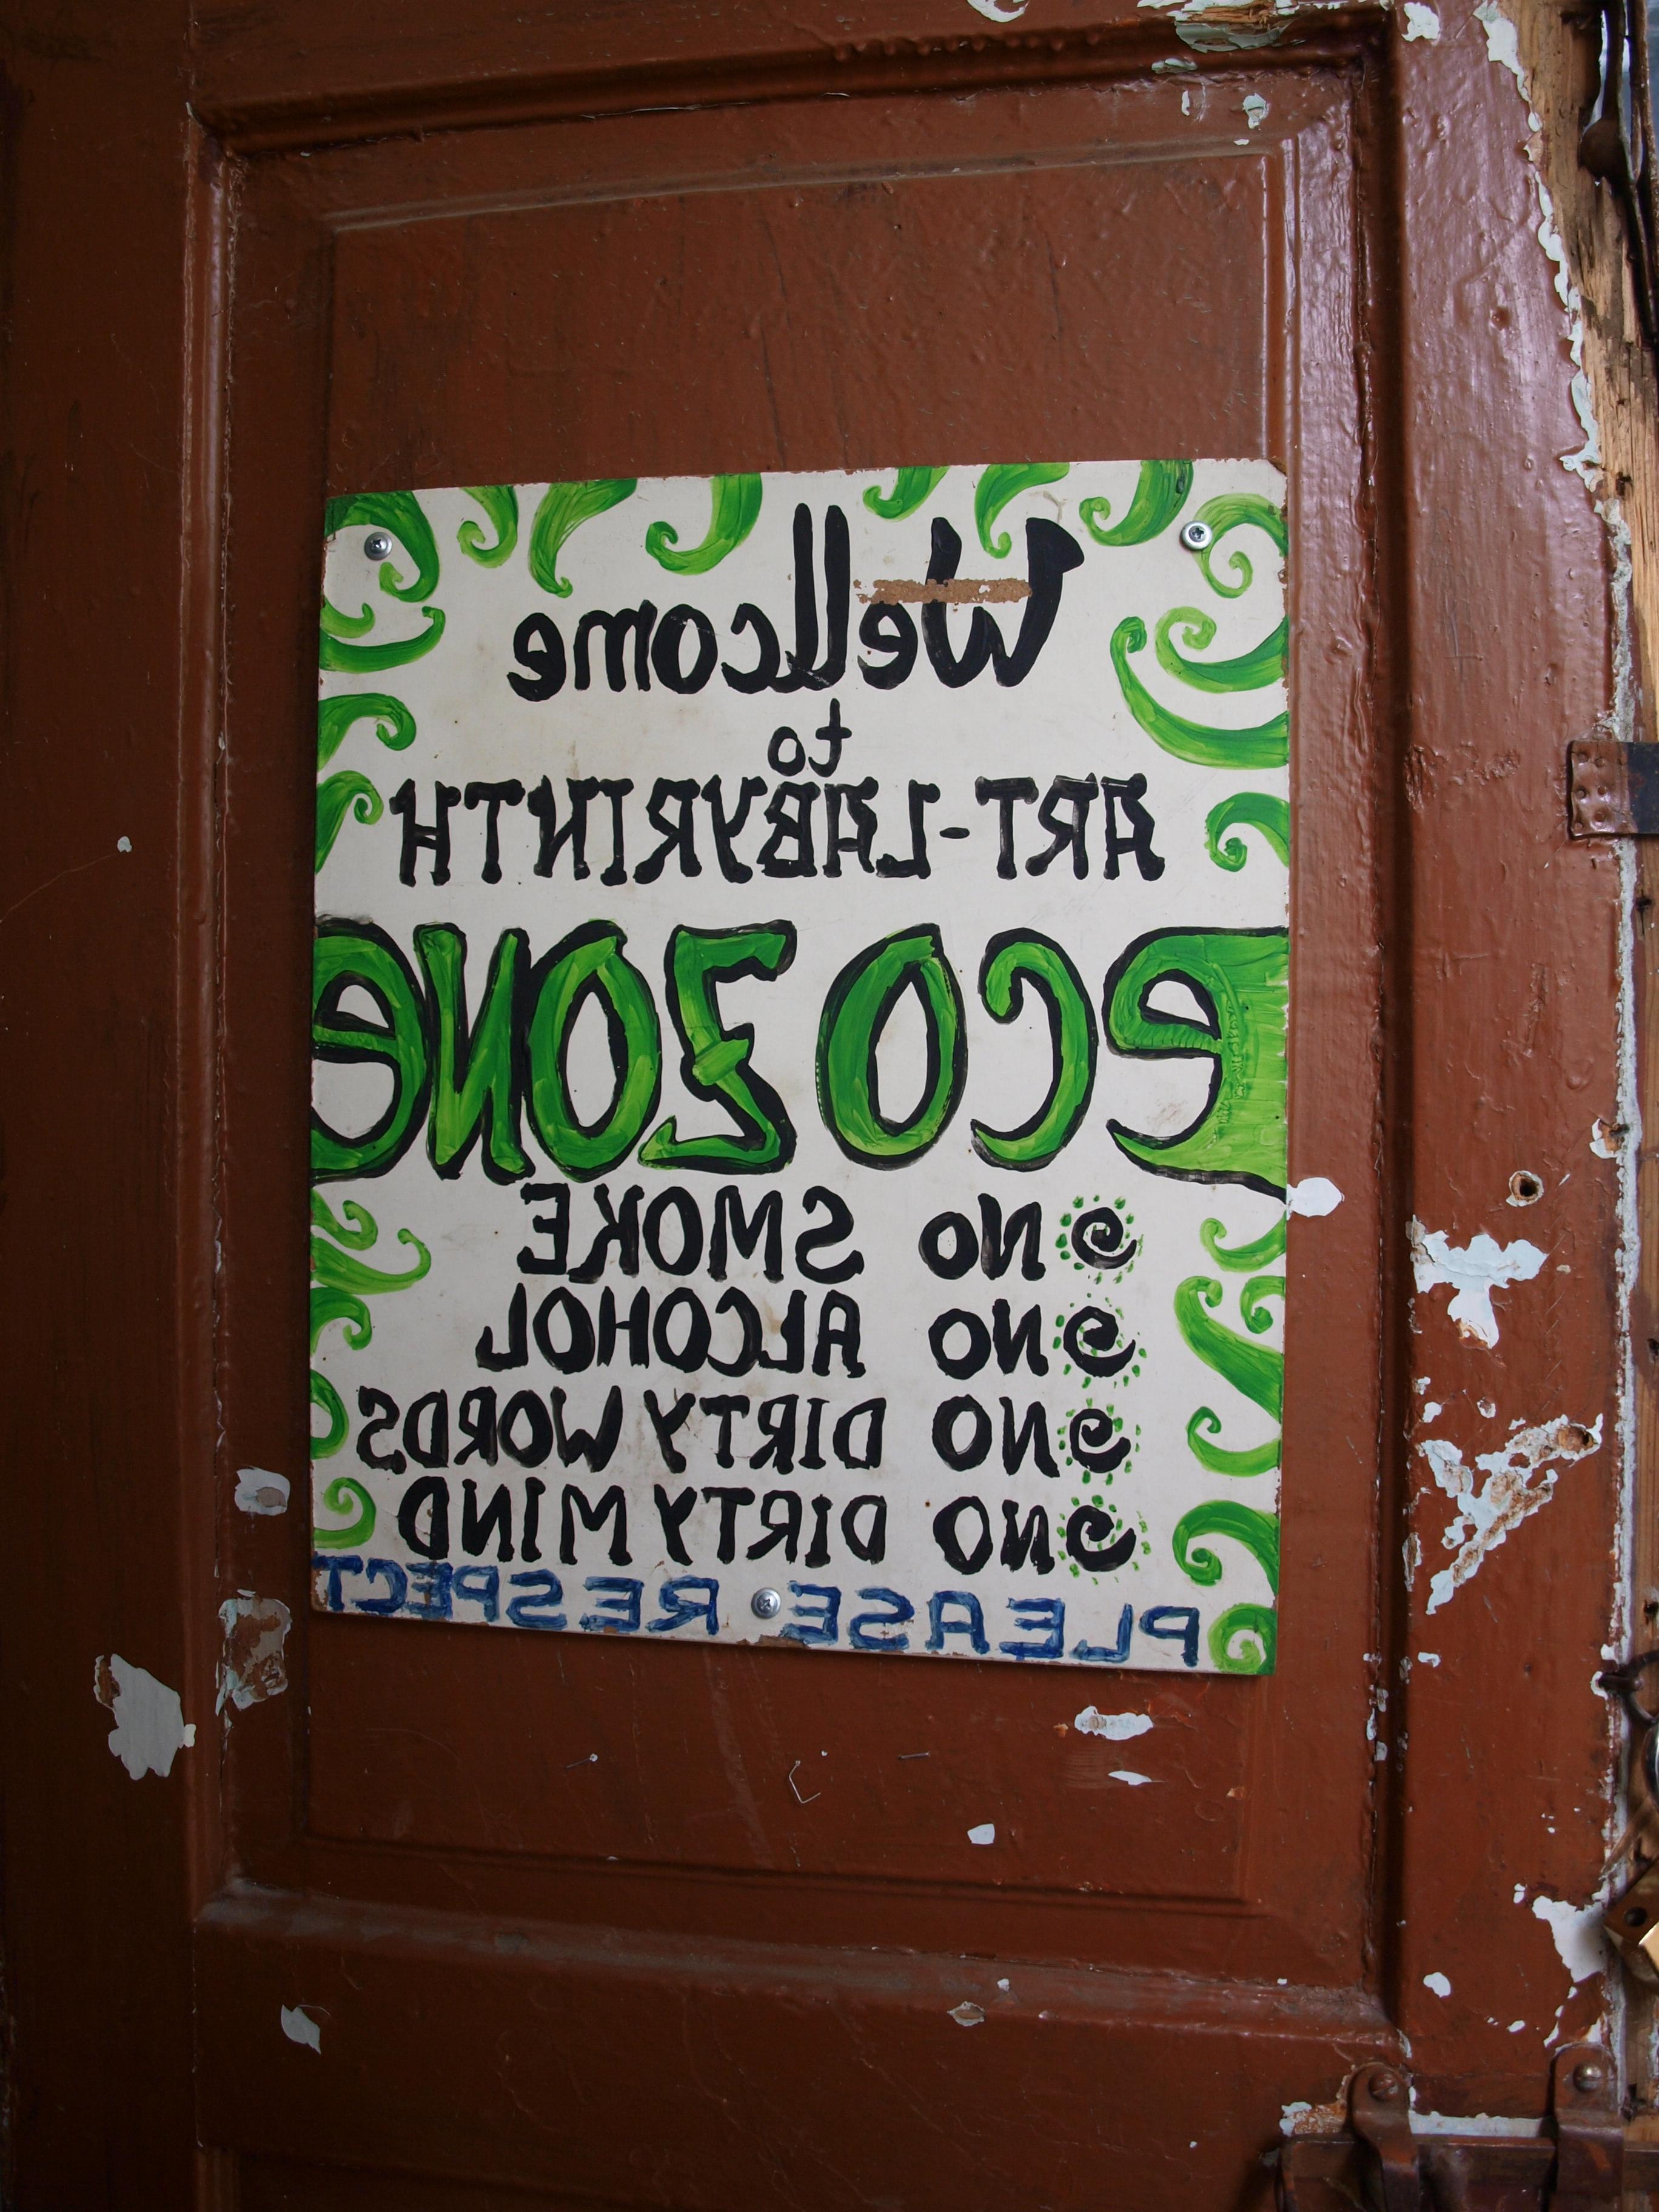 Wellcome
to
ART-LABYRINTH
eco ZONe
No SMOKE
No ALCOHOL
No DIRTY WORDS
No DIRTY MIND
PLEASE RESPECT